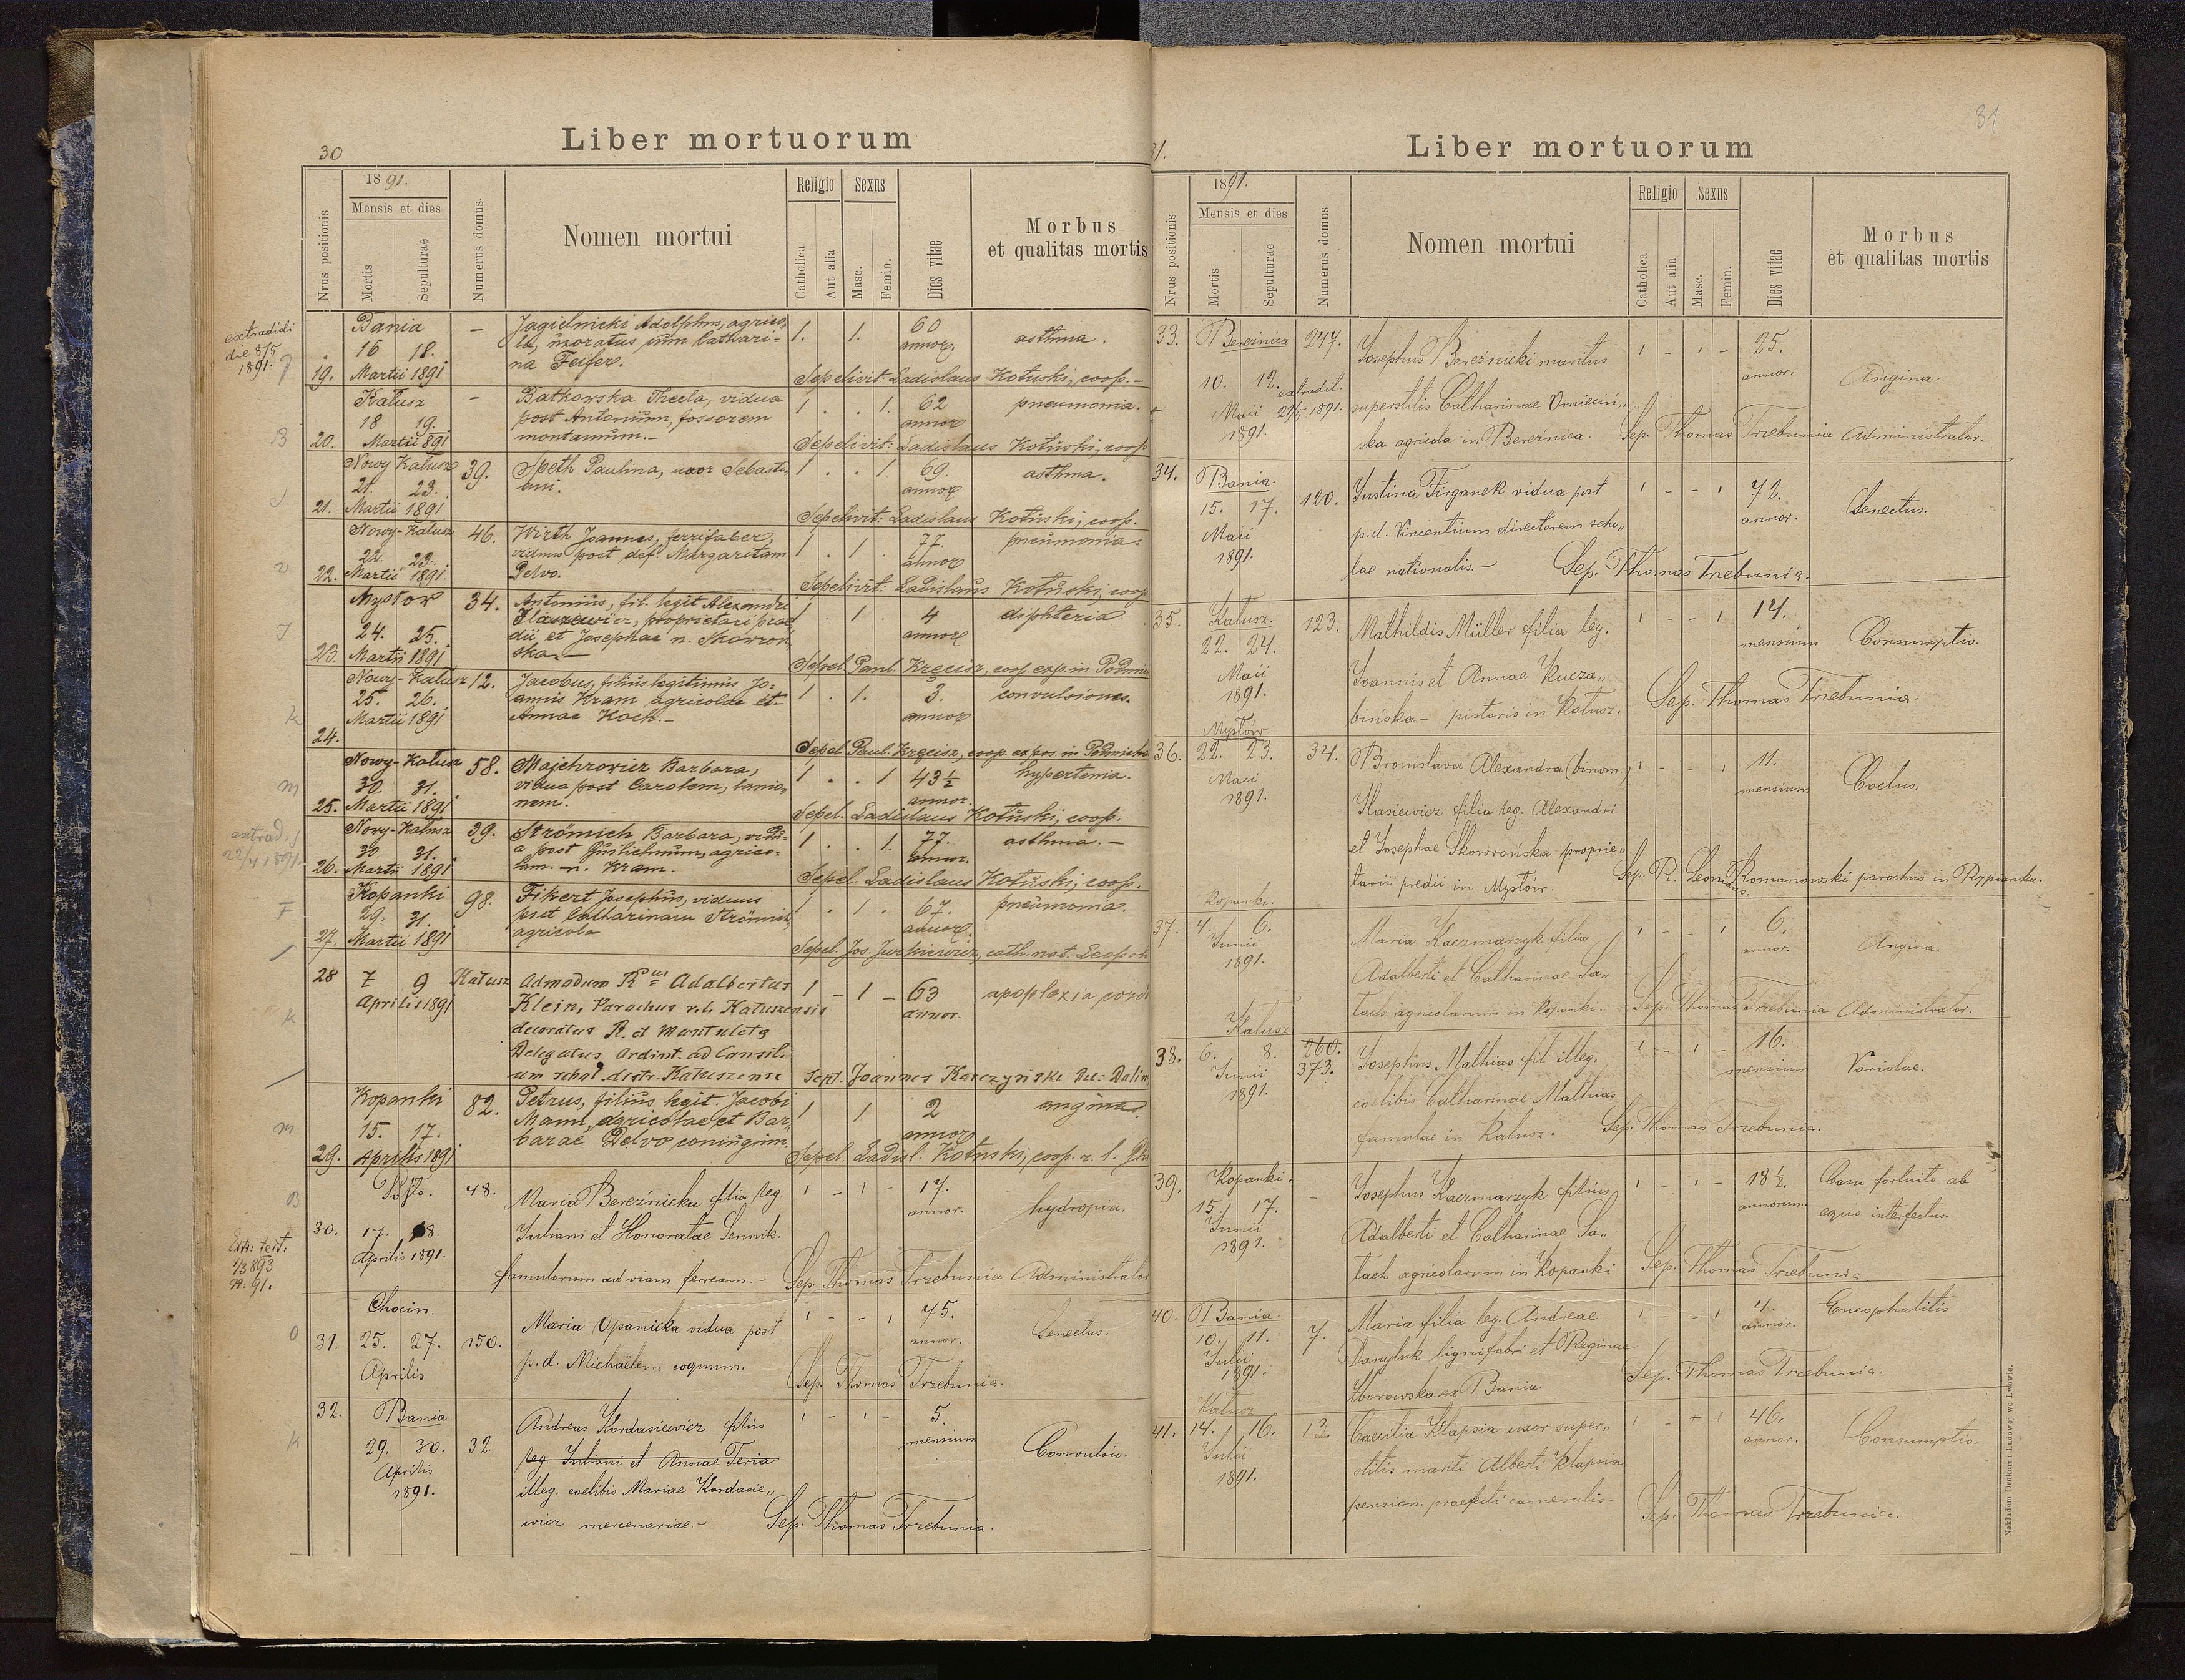 30
Liber mortuorum
Nrus positionis
1891.
Mensis et dies
Mortis
Sepulturae
Numerus domus
Nomen mortui
Religio
Catholica
Aut alia
Sexus
Masc.
Femin.
Dies vitae
Morbus
et qualitas mortis
extradidi
die 8/5
1891.
19.
Bania
16 18.
Martii 1891
-
Jagielnicki Adolphus, agrico-
la, uxoratus cum Cathari-
na Feifer.
1. 1.
60
annor.
asthma.
Sepelivit: Ladislaus Kotuski, coop.-
B
20.
Kałusz
18 19.
Martii 891
-
Batkowska Thecla, vidua
post Antonium, fossorem
montanum.-
1 . . 1.
62
annor
pneumonia.
Sepelivit: Ladislaus Kotuski, coop
21.
Nowy Kałusz
21. 23.
Martii 1891
39.
Speth Paulina, uxor Sebasti-
ani.
1 . . 1
69.
annor
asthma.
Sepelivit: Ladislaus Kotuski, coop.
22.
Nowy-Kałusz
22. 23.
Martii 1891
46.
Wirth Joannes, ferrifaber,
viduus post def. Margaretam
Delvo.
1 . 1 .
77.
annor
pneumonia.
Sepelivit: Ladislaus Kotuski, coop
23.
Mysłow
24. 25.
Martii 1891
34.
Antonius, fil. legit Alexandri
proprietarii prae
dii et Josephae n. Skowroń
ska.-
1 . 1 .
4
annor
diphteria
Sepel. Paul. Kręcisz, coop. exp. in
K
24.
Nowy-Kałusz
25. 26.
Martii 1891
12.
Jacobus, filius legitimus Jo-
annis Kram agricolae et
Annae Koch.-
1 . 1.
3.
annor
convulsiones.
Sepel. Paul. Kręcisz, coop. expos. in
m
25.
Nowy-Kałusz
30. 31.
Martii 1891
58.
Majchrowicz Barbara,
vidua post Carolem, lanio-
nem.
1 . . 1
43 1/2
annor.
Sepel. Ladislaus Kotuski, coop.
extrad.
22/4 1891.
26.
Nowy-Kałusz
30. 31.
Martii 1891
39.
Strömich Barbara, vidu-
a post Guilielmum, agrico-
lam. n. Kram.
1 . . 1.
77.
annor.
asthma.-
Sepel. Ladislaus Kotuski, coop.
F
27.
Kopanki
29. 31.
Martii 1891
98.
Fikert Josephus, viduus
post Catharinam Strömich,
agricola
1 . 1 .
67.
annor.
pneumonia.
Sepel. Jos. Jurkiewicz, cath. nat. Leopol
K
28
7 9
Aprilis 1891
Kałusz
Admodum R Adalbertus
Klein, Parochus r.l. Kałuszensis
decoratus R. et Mantuleta
Delegatus Ordinat. ad Consili
um schol. distr. Kałuszense
1 - 1 -
63
annor.
apoplexia
Sept. Joannes Karczyński
m
29.
Kopanki
15. 17.
Aprilis 1891
82.
Petrus, filius legit. Jacobi
Mann, agricolae et Bar
barae Delvo coniugum.
1 1
2
annor
angina.
Sepel. Ladisl. Kotuski, coop. r. l.
B
Extr: test:
1/3 893
n. 91.
30.
17. 18.
Aprilis 1891.
48.
Maria Bereźnicka filia leg.
Juliani et Honoratae Sennik.
famulorum ad viam ferream.-
1 - 1 -
17.
annor.
hydropia.
Sep. Thomas Trzebunia Administrator
O
31.
Chocin.
25. 27.
Aprilis
150.
Maria Opanicka vidua post
p.d. Michaëlem coquum.
1 - - 1
75.
annor.
Senectus.
Sep. Thomas Trzebunia.
K
32.
Bania
29. 30.
Aprilis
1891.
32
Andreas Kordasiewicz filius
leg. Juliani et Annae Feria
illeg. coelibis Mariae Kordasie„
wicz mercenariae.-
1 - 1 -
5.
mensium
Convulsio.
Sep. Thomas Trzebunia.
31
31.
Liber mortuorum
Nrus positionis
1891.
Mensis et dies
Mortis
Sepulturae
Numerus domus
Nomen mortui
Religio
Catholica
Aut alia
Sexus
Masc.
Femin.
Dies vitae
Morbus
et qualitas mortis
33.
Bereźnica
10. 12.
Maii
1891.
247.
extradit.
21/5 1891.
Josephus Bereźnicki maritus
superstitis Catharinae Omieciń„
ska agricola in Bereźnica.
1 - 1 -
25.
annor.
Angina.
Sep. Thomas Trzebunia Administrator.
34.
Bania.
15. 17.
Maii
1891.
120.
Justina Firganek vidua post
p.d. Vincentium directorem scho„
lae nationalis.-
1 - - 1
72.
annor.
Senectus.
Sep. Thomas Trzebunia.
35.
Kałusz.
22. 24.
Maii
1891.
123.
Mathildis Müller filia leg.
Joannis et Annae Kucza„
bińska - pistoris in Kałusz.
1 - - 1
14.
mensium
Consumptio.
Sep. Thomas Trzebunia.
36.
Mysłów
22. 23.
Maii
1891.
34.
Bronislava Alexandra (binom.)
Hasiewicz filia leg. Alexandri
et Josephae Skowrońska proprie„
tarii predii in Mysłów.
1 - - 1
11.
mensium
Coctus.
Sep. R. Leonidas Romanowski parochus in Rypianka.
37.
Kopanki.
4. 6.
Junii
1891.
Maria Kaczmarzyk filia
Adalberti et Catharinae Sa„
tach agricolarum in Kopanki.
1 - - 1
6.
annor.
Angina.
Sep. Thomas Trzebunia Administrator.
38.
Kałusz
6. 8.
Junii
1891.
260.
373.
Josephus Mathias fil. illeg.
coelibis Catharinae Mathias
famulae in Kałusz.
1 - 1 -
16.
mensium
Variolae.
Sep. Thomas Trzebunia.
39.
Kopanki.
15. 17.
Junii
1891.
-
Josephus Kaczmarzyk filius
Adalberti et Catharinae Sa„
tach agricolarum in Kopanki
1 - 1 -
18 1/2.
annorum
Casu fortuito ab
equo interfectus.
Sep. Thomas Trzebunia
40.
Bania.
10. 11.
Julii
1891.
7.
Maria filia leg. Andreae
Danyluk lignifabri et Reginae
Zborowska ex Bania.
1 - - 1
4.
annor.
Encephalitis
Sep. Thomas Trzebunia.
41.
Kałusz
14. 16.
Julii
1891.
13.
Caecilia Klapsia uxor super„
stitis mariti Alberti Klapsia
pension. praefecti cameralis.
1 - + 1
46.
annor.
Consumptio.
Sep. Thomas Trzebunia.
Nakładem Drukarni Ludowej we Lwowie.